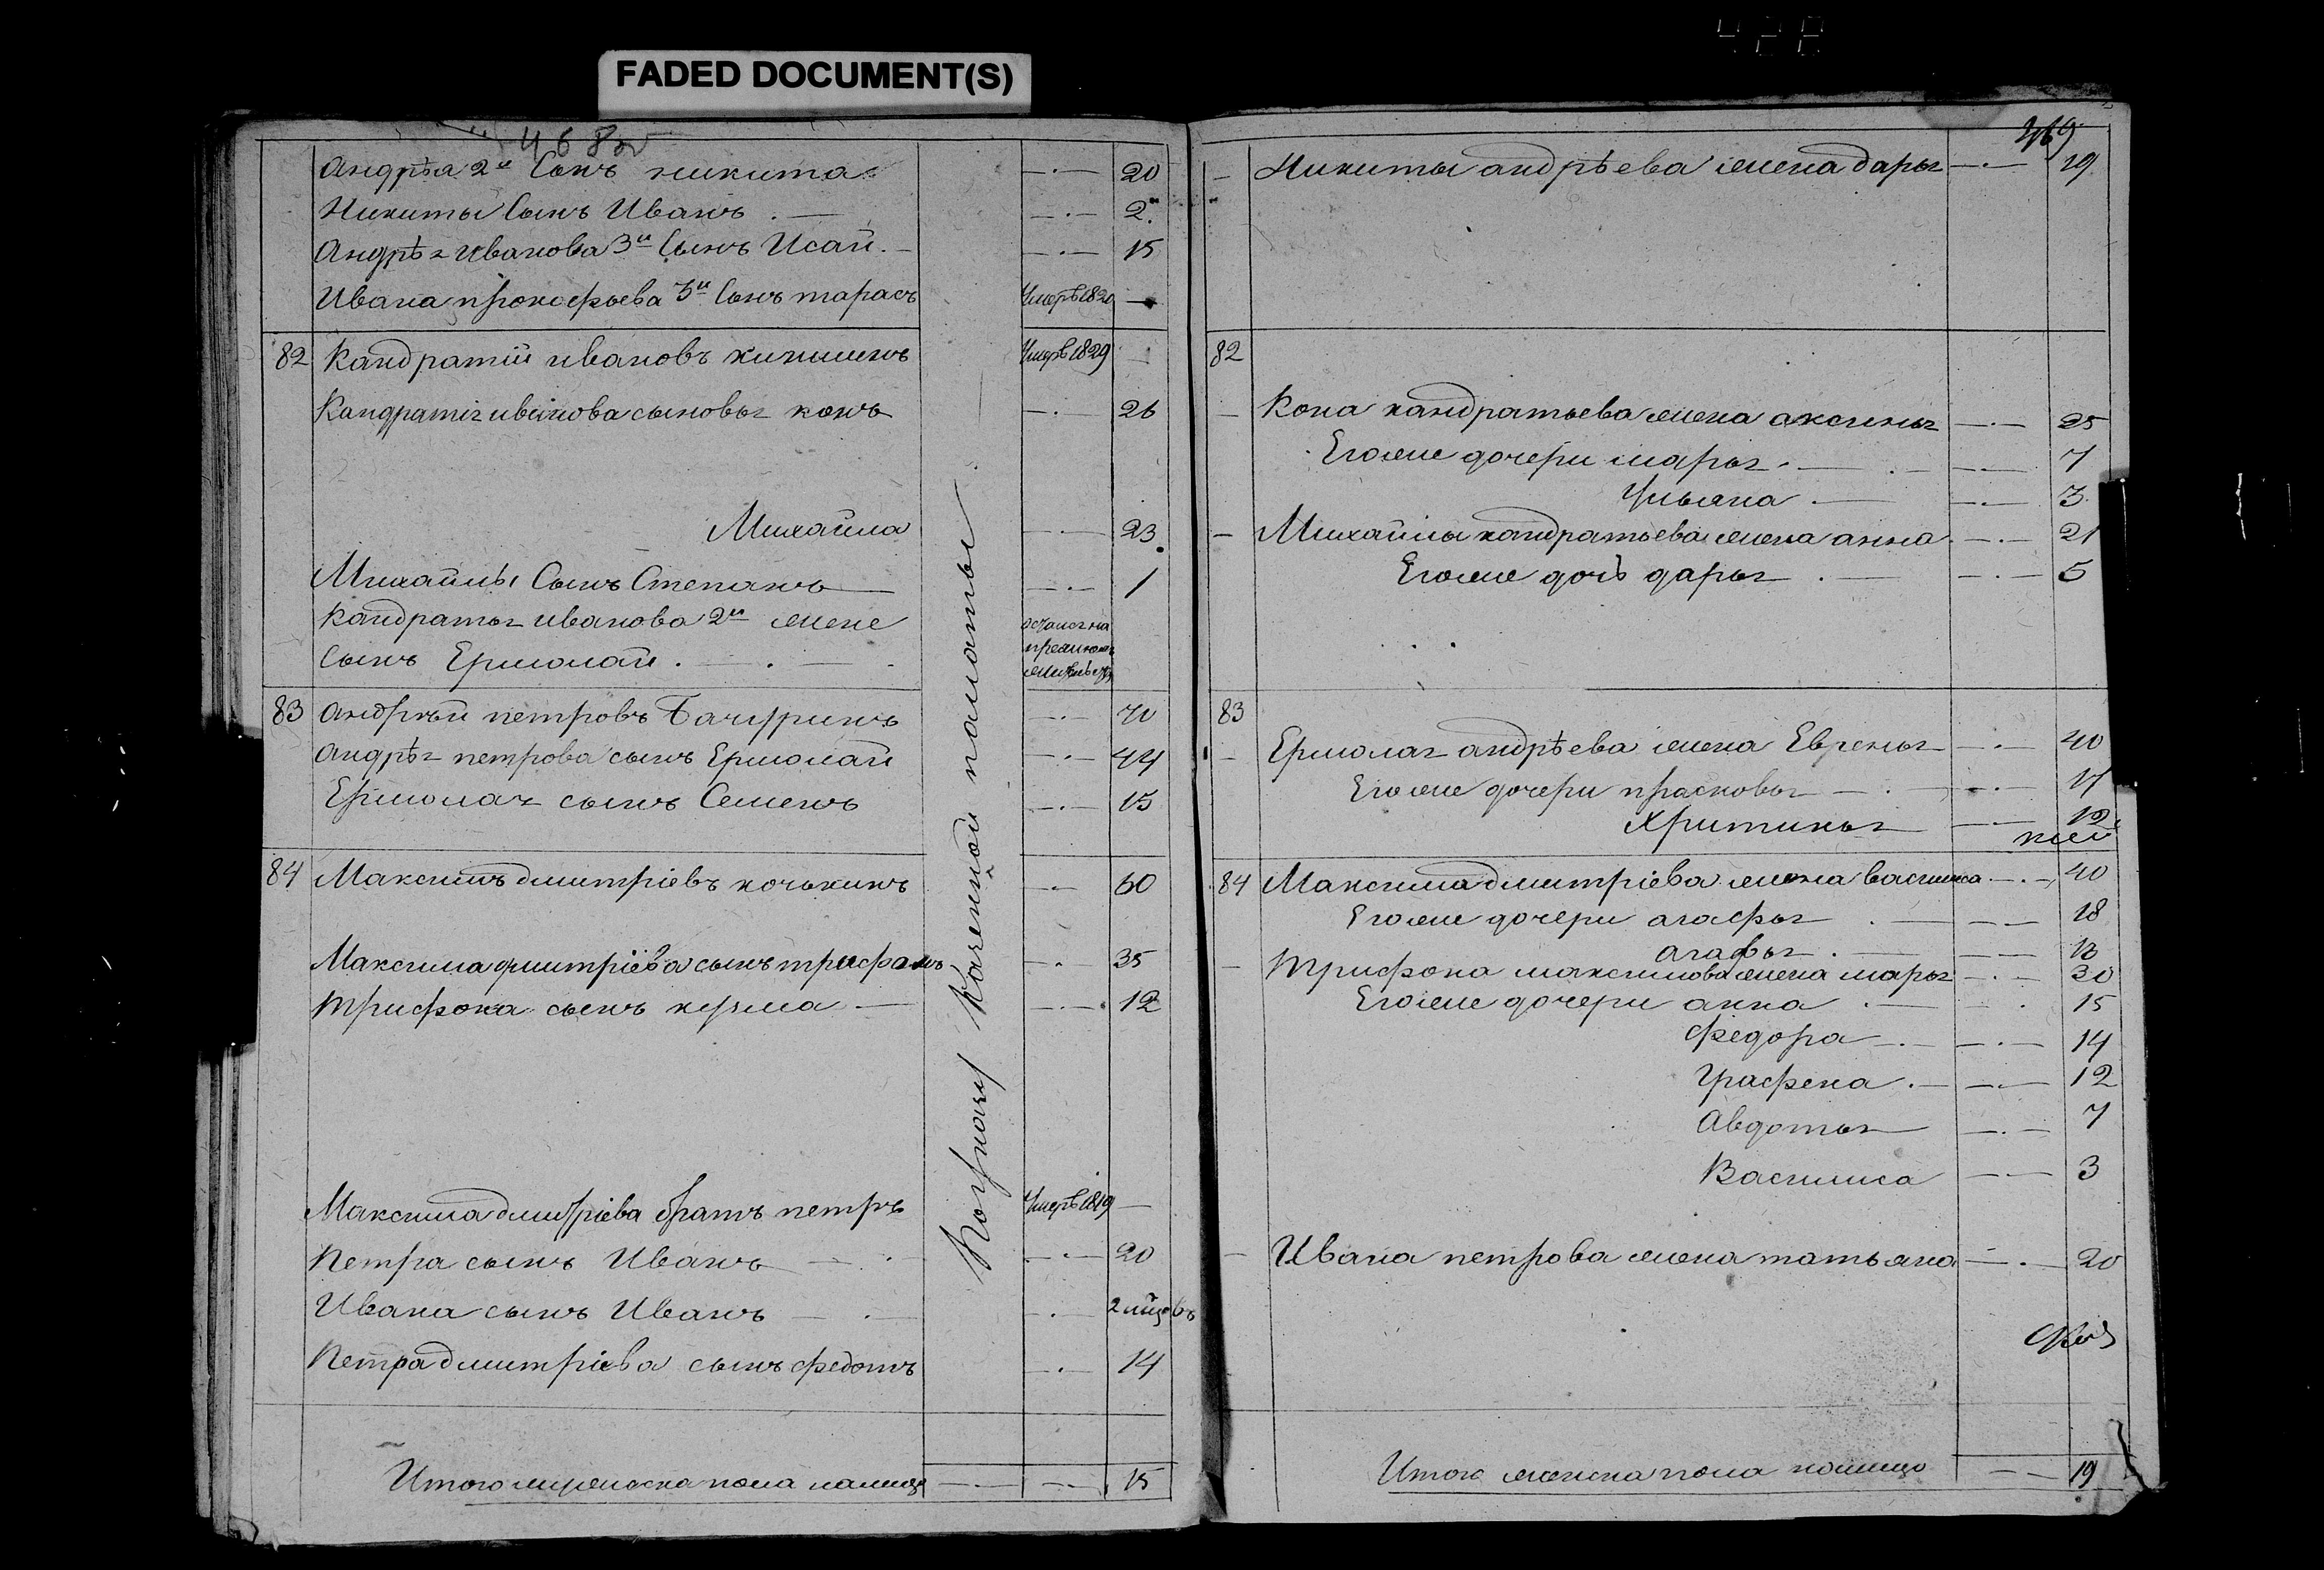 422
FADED DOCUMENT(S)
468об
Андрѣя 2й Сынъ никита 20
Никиты Сынъ Иванъ 2
Андрѣя иванова 3й Сынъ Исай 15
Ивана прокофьева 3й Сынъ тарасъ Умеръ 1820
82 Кандратий ивановъ
Умеръ 1829
Кандратія иванова сыновья конъ 26
Михайла 23
Михайлы Сынъ Степанъ 1
Кандратья иванова 2й жене
сынъ Ермолай
83 Андрѣй петровъ Батуринъ 70
Андрѣя петрова сынъ Ермолай 44
Ермолая сынъ Семенъ 15
84 Максимъ дмитріевъ кочькинъ 60
Максима дмитріева сынъ трифонъ 35
Трифона сынъ кузма 12
Максима дмитріева братъ петръ Умеръ 1819
Петра сынъ Иванъ 20
Ивана сынъ Иванъ
Петра дмитріева сынъ федотъ 14
Итого мужеска пола налицо 15
469
Никиты андрѣева жена дарья 19
82
Кона кандратьева жена аксинья 25
Егоже дочери марья 7
Ульяна 3
Михайлы кандратьева жена анна 21
Егоже дочь дарья 5
83
Ермолая андрѣева жена Евгенья 40
Егоже дочери прасковья 17
Хритинья 12
84 Максима дмитріева жена василиса 40
Егоже дочери агафья 18
агафья 13
Трифона максимова жена марья 30
Егоже дочери анна 15
Федора 14
Графена 12
Авдотья 7
Василиса 3
Ивана петрова жена татьяна 20
Итого женска пола налицо 19